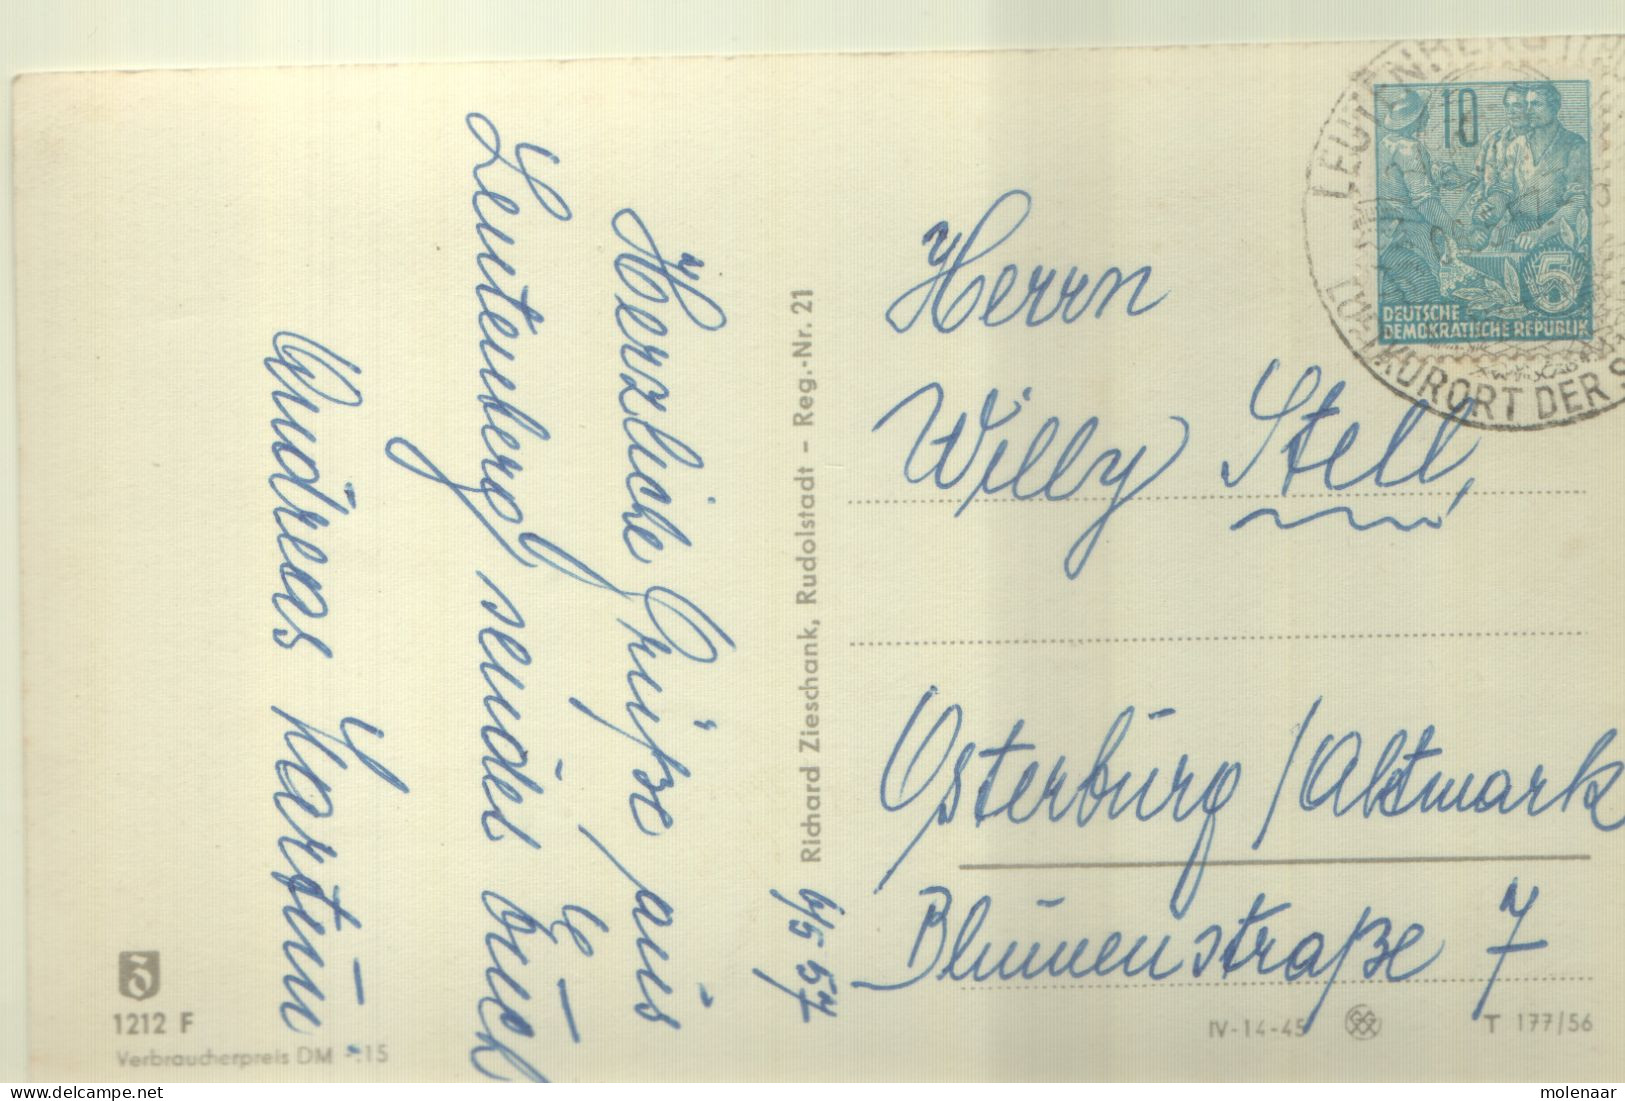 6/5 57
Herzliche Grüße aus
Leutenberg sendet Euch
Andreas Hartung
Richard Zieschank, Rudolstadt - Reg.-Nr. 21
1212 F
Verbraucherpreis DM -.15
LEUTENBERG (THÜ
KURORT DER S
10
5
DEUTSCHE
DEMOKRATISCHE REPUBLIK
Herrn
Willy Stell,
Osterburg/Altmark
Blumenstraße 7
IV-14-45
T 177/56
molenaar